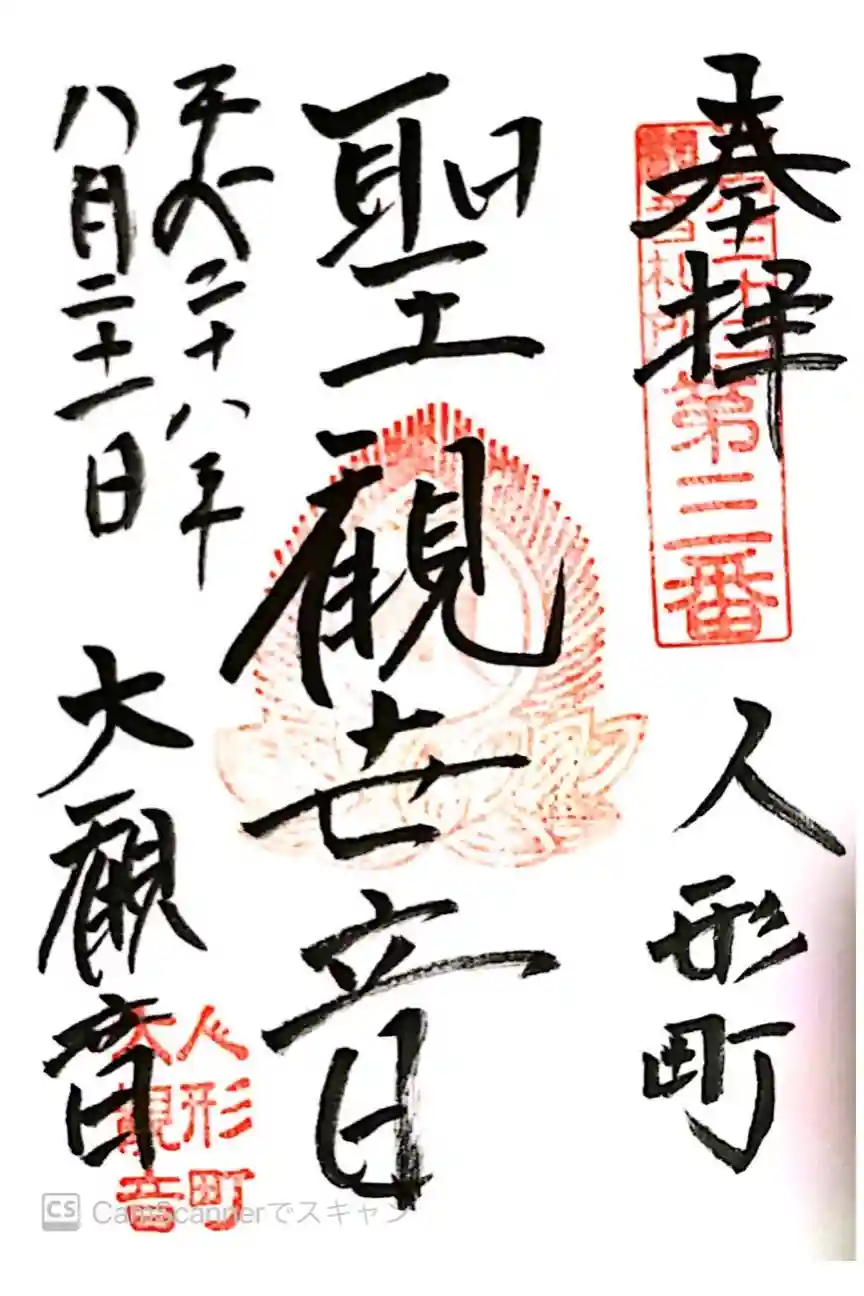 奉拝
第三番
人形町
聖観世音
平成二十八年
八月二十一日
大観音
人形町
大観音
CS CamScannerでスキャン